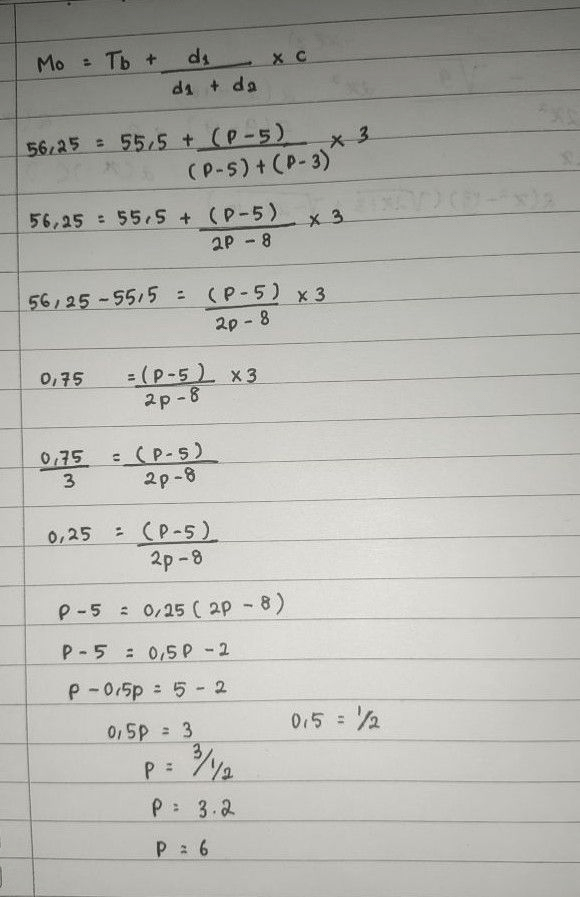 Mo = Tb + d1/(d1 + d2) x c
56,25 = 55,5 + (P-5)/((P-5)+(P-3)) x 3
56,25 = 55,5 + (P-5)/(2P-8) x 3
56,25-55,5 = (P-5)/(2P-8) x 3
0,75 = (P-5)/(2P-8) x 3
0,75/3 = (P-5)/(2P-8)
0,25 = (P-5)/(2P-8)
P-5 = 0,25(2P-8)
P-5 = 0,5P-2
P-0,5P = 5-2
0,5P = 3 0,5 = 1/2
P = 3/1/2
P = 3.2
P = 6